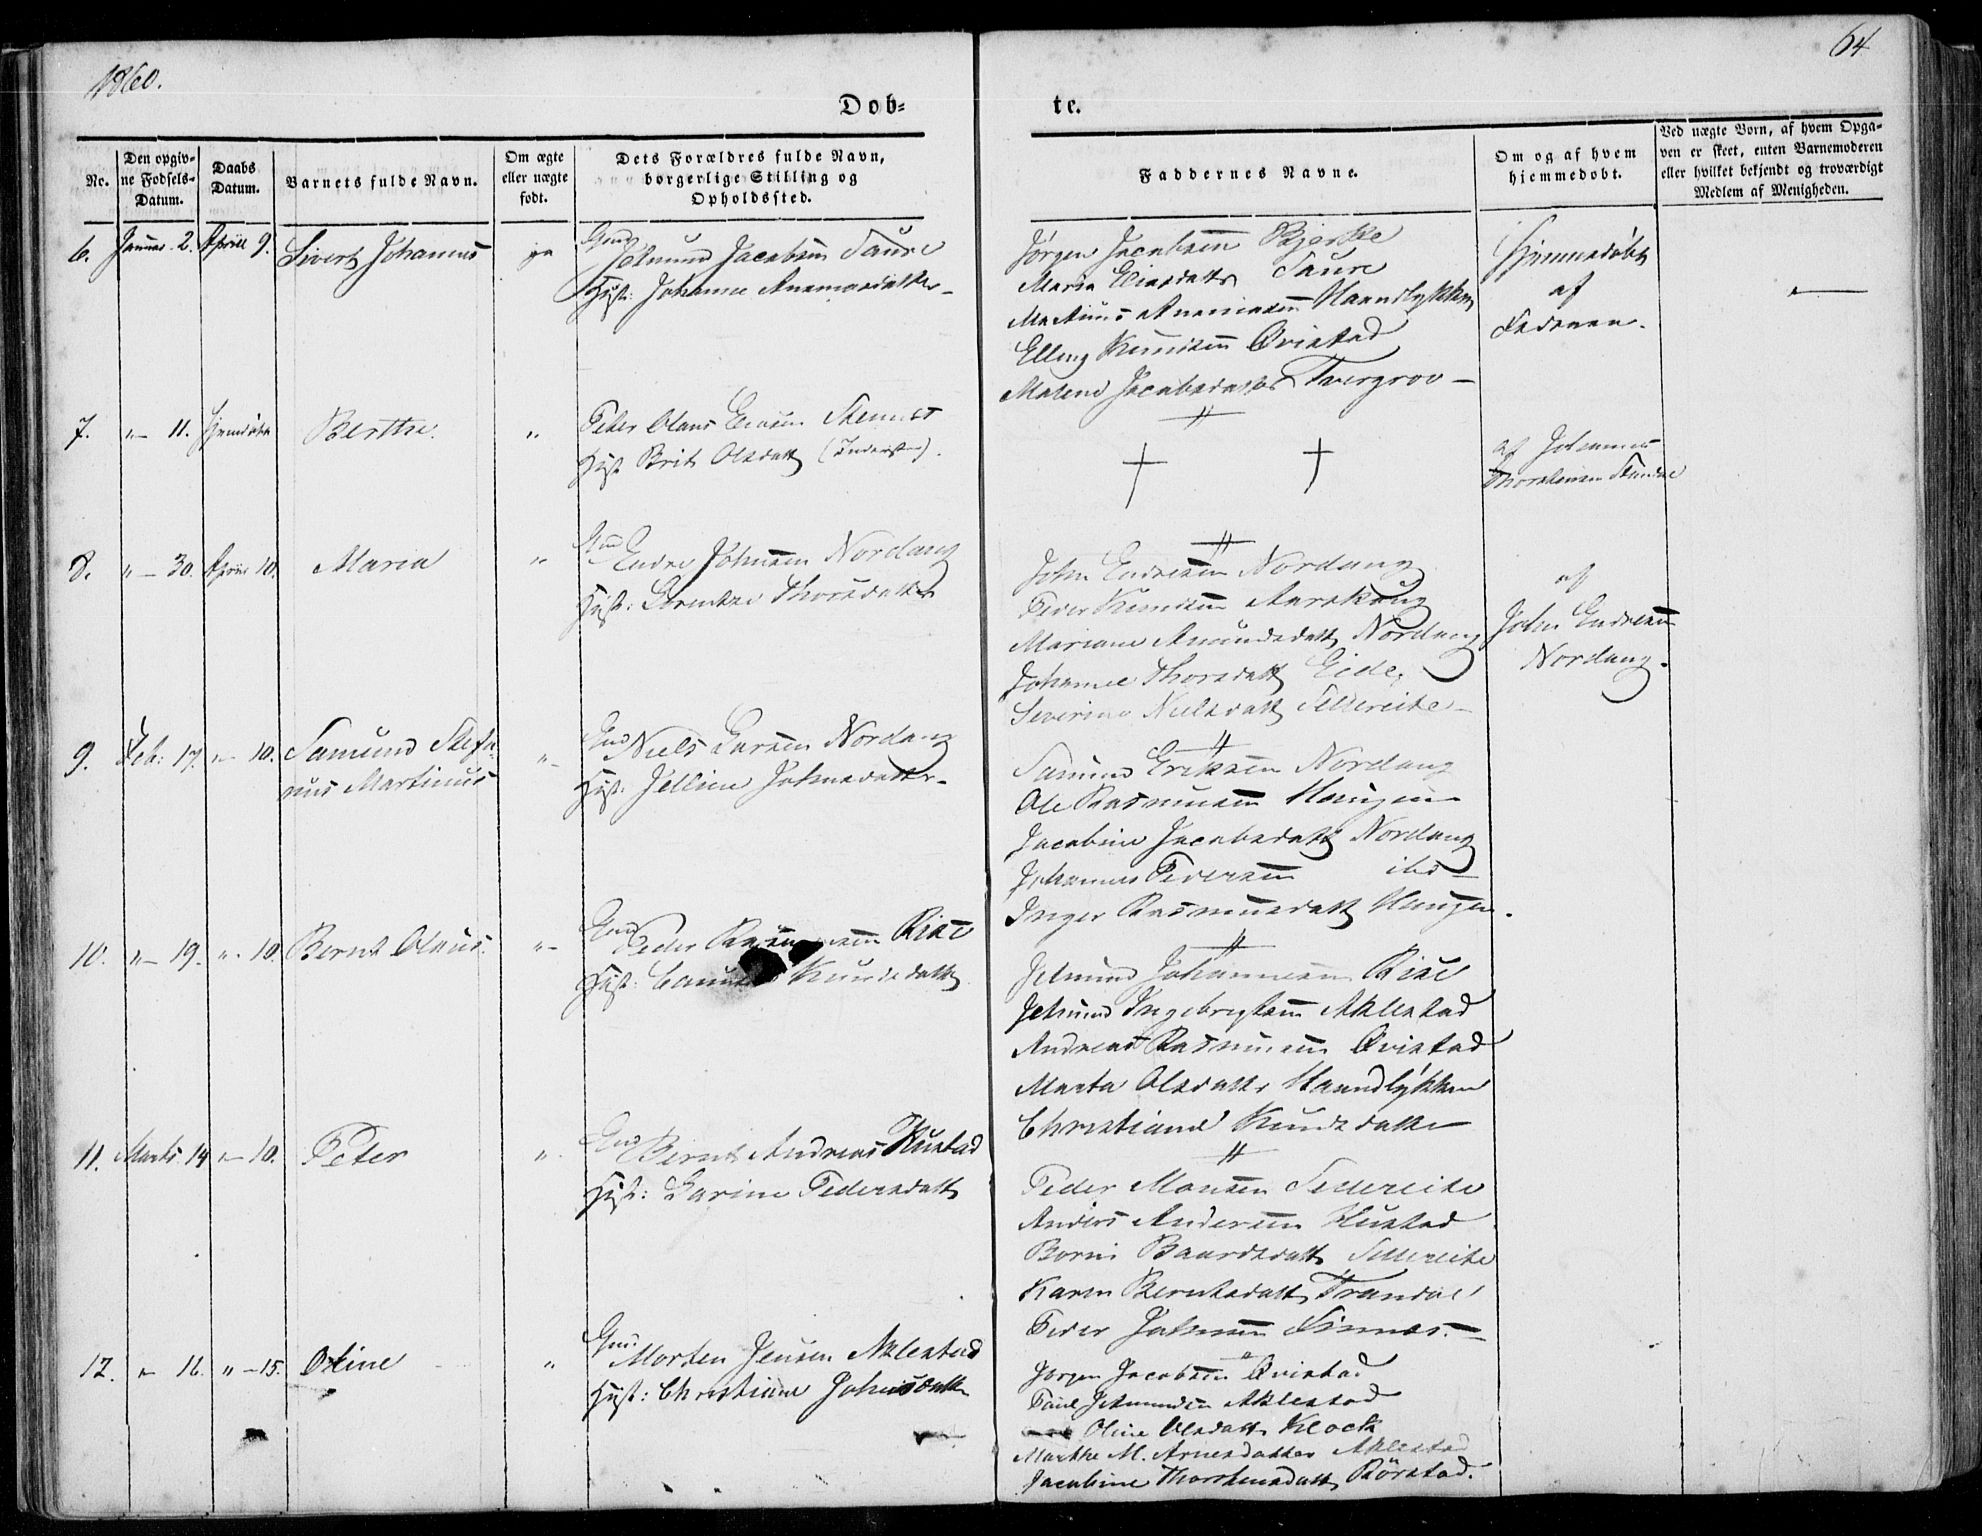 1860.
64
Dob-
te.
Nr.
Den opgiv-
ne Fødsels-
Datum.
Daabs
Datum.
Barnets fulde Navn.
Om ægte
eller uægte
født.
Dets Forældres fulde Navn,
borgerlige Stilling og
Opholdssted.
Faddernes Navne.
Om og af hvem
hjemmedøbt.
Ved uægte Børn, af hvem Opga-
ven er skeet, enten Barnemoderen
eller hvilket bekjendt og troværdigt
Medlem af Menigheden.
6. Januar 2. April 9. Sivert Johannes
Gmd Jetmund Jacobsen Saure
Hust: Johanne
Jørgen Jacobsen Bjerke
Maria Eliasdatter Saure
Martinus Haandlykken
Elling Knudsen Qvistad
Malene Jacobsdatter Tvergrov –
Hjemmedøbt
af
Faderen.
7. "– 11. Hjemdøbt Berthe. "
Peter Olaus
Hust Brit Olsdatt (Inderster).
af Johannes
8. "– 30. April 10. Maria "
Gmd Endre Johnsen Nordang
Hust: Lorentze Thorsdatter
John Endresen Nordang
Peder Knudsen Aarskoug
Mariane Amundsdatt Nordang
Johanne Thorsdatt Eide,
Severine Nielsdatt Sellereite –
af
John Endresen
Nordang.
9. Feb: 17. "– 10. Samund Stefa-
nus Martinus
"–
Gmd Niels Larsen Nordang
Hust: Jelline Johnsdatter –
Samund Eriksen Nordang
Ole Rasmusen Haugen
Jacobine Jacobsdatt Nordang
Johannes Pedersen ibd –
Inger Rasmusdatt Haugen.
10. "– 19. "– 10. Bernt Olaus. "–
Gmd Peder Rise
Hust: Knudsdatt
Jetmund Johannesen Rise
Jetmund Ingebrigtsen Aklestad
Andreas Rasmusen Qvistad
Marta Olsdatter Haandlykken
Christiane Knudsdatter
11. Marts 14 "– 10. Peter "
Gmd Bernt Andreas Hustad
Hust: Karine Pedersdatt
Peder Monsen Sellereite
Anders Andersen Hustad
Baardsdatt Sellereite
Karen Berntsdatt Trandal
Peder Johnsen Finnes. –
12. "– 16. "– 15. Oline "
Gmd Morten Jensen Aklestad
Hust: Christiane Johnsdatter
Jørgen Jacobsen Qvistad
Paul Jetmundsen Aklestad
Oline Olsdatt Klock
Marthe M. Arnesdatter Aklestad
Jacobine Thorstensdatt Rørstad.